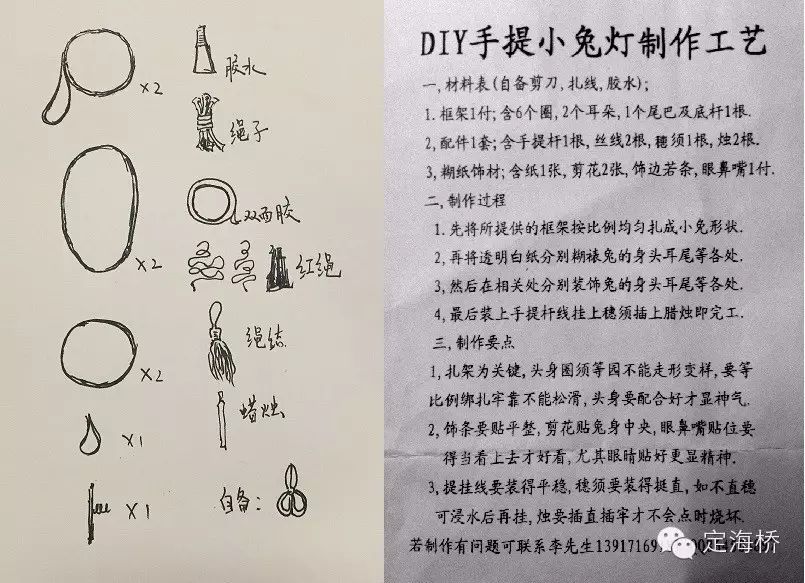 ×2
胶水
绳子
×2
双面胶
红绳
×2
绳结
蜡烛
×1
×1
自备:
DIY手提小兔灯制作工艺
一,材料表(自备剪刀,扎线,胶水);
1.框架1付;含6个圈,2个耳朵,1个尾巴及底杆1根.
2,配件1套;含手提杆1根,丝线2根,穗须1根,烛2根.
3,糊纸饰材;含纸1张,剪花2张,饰边若条,眼鼻嘴1付.
二,制作过程
1.先将所提供的框架按比例均匀扎成小兔形状.
2,再将透明白纸分别糊裱兔的身头耳尾等各处.
3,然后在相关处分别装饰兔的身头耳尾等各处.
4,最后装上手提杆线挂上穗须插上腊烛即完工.
三,制作要点
1,扎架为关键,头身圈须等园不能走形变样,要等
比例绑扎牢靠不能松滑,头身要配合好才显神气.
2,饰条要贴平整,剪花贴兔身中央,眼鼻嘴贴位要
得当看上去才好看,尤其眼睛贴好更显精神.
3,提挂线要装得平稳,穗须要装得挺直,如不直穗
可浸水后再挂,烛要插直插牢才不会点时烧坏.
若制作有问题可联系李先生13917169
定海桥